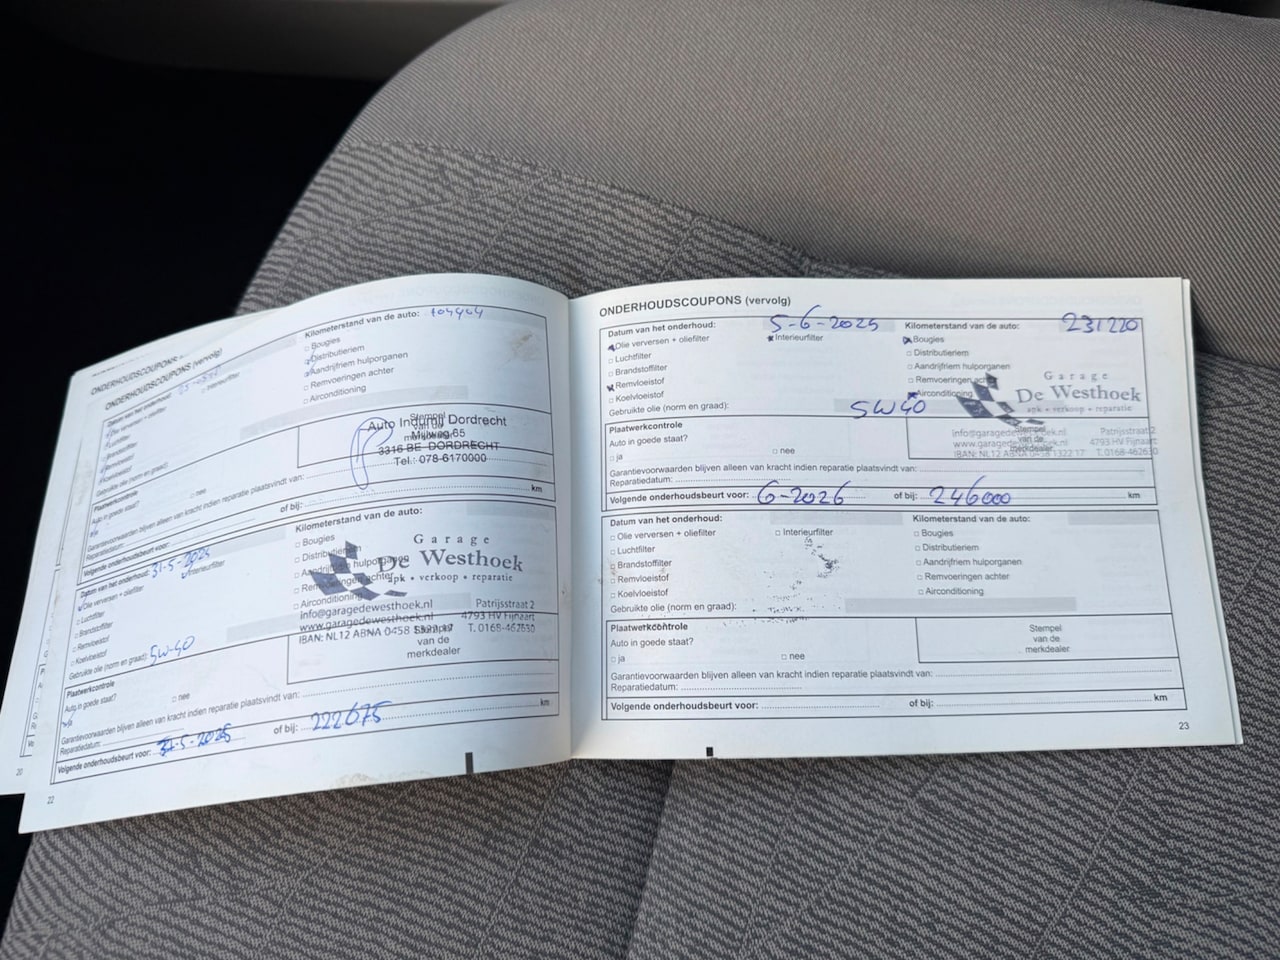 ONDERHOUDSCOUPONS
ONDERHOUDSCOUPONS (vervolg)
Datum van het onderhoud:
Kilometerstand van de auto: 104464
Olie verversen + oliefilter
Interieurfilter
Bougies
Luchtfilter
Distributieriem
Brandstoffilter
Aandrijfriem hulporganen
Remvloeistof
Remvoeringen achter
Koelvloeistof
Airconditioning
Gebruikte olie (norm en graad):
Plaatwerkcontrole
Auto in goede staat?
ja
nee
Stempel van de merkdealer
Auto Indumij Dordrecht
Mijlweg 65
3316 BE DORDRECHT
Tel.: 078-6170000
Garantievoorwaarden blijven alleen van kracht indien reparatie plaatsvindt van:
Reparatiedatum:
Volgende onderhoudsbeurt voor:
of bij:
km
Datum van het onderhoud: 31-5-2024
Kilometerstand van de auto:
Olie verversen + oliefilter
Interieurfilter
Bougies
Luchtfilter
Distributieriem
Brandstoffilter
Aandrijfriem hulporganen
Remvloeistof
Remvoeringen achter
Koelvloeistof
Airconditioning
Gebruikte olie (norm en graad): 5W-40
Garage
De Westhoek
apk • verkoop • reparatie
info@garagedewesthoek.nl
Patrijsstraat 2
www.garagedewesthoek.nl
4793 HV Fijnaart
IBAN: NL12 ABNA 0458 1322 17
T. 0168-462630
Stempel
van de
merkdealer
Plaatwerkcontrole
Auto in goede staat?
ja
nee
Garantievoorwaarden blijven alleen van kracht indien reparatie plaatsvindt van:
Reparatiedatum:
Volgende onderhoudsbeurt voor: 31-5-2025
of bij: 222675
km
20
22
ONDERHOUDSCOUPONS (vervolg)
Datum van het onderhoud: 5-6-2025
Kilometerstand van de auto: 231220
Olie verversen + oliefilter
Interieurfilter
Bougies
Luchtfilter
Distributieriem
Brandstoffilter
Aandrijfriem hulporganen
Remvloeistof
Remvoeringen achter
Koelvloeistof
Airconditioning
Gebruikte olie (norm en graad): 5W40
Garage
De Westhoek
apk • verkoop • reparatie
info@garagedewesthoek.nl
Patrijsstraat 2
www.garagedewesthoek.nl
4793 HV Fijnaart
IBAN: NL12 ABNA 0458 1322 17
T. 0168-462630
Stempel
van de
merkdealer
Plaatwerkcontrole
Auto in goede staat?
ja
nee
Garantievoorwaarden blijven alleen van kracht indien reparatie plaatsvindt van:
Reparatiedatum:
Volgende onderhoudsbeurt voor: 6-2026
of bij: 246000
km
Datum van het onderhoud:
Kilometerstand van de auto:
Olie verversen + oliefilter
Interieurfilter
Bougies
Luchtfilter
Distributieriem
Brandstoffilter
Aandrijfriem hulporganen
Remvloeistof
Remvoeringen achter
Koelvloeistof
Airconditioning
Gebruikte olie (norm en graad):
Plaatwerkcontrole
Auto in goede staat?
ja
nee
Stempel
van de
merkdealer
Garantievoorwaarden blijven alleen van kracht indien reparatie plaatsvindt van:
Reparatiedatum:
Volgende onderhoudsbeurt voor:
of bij:
km
23